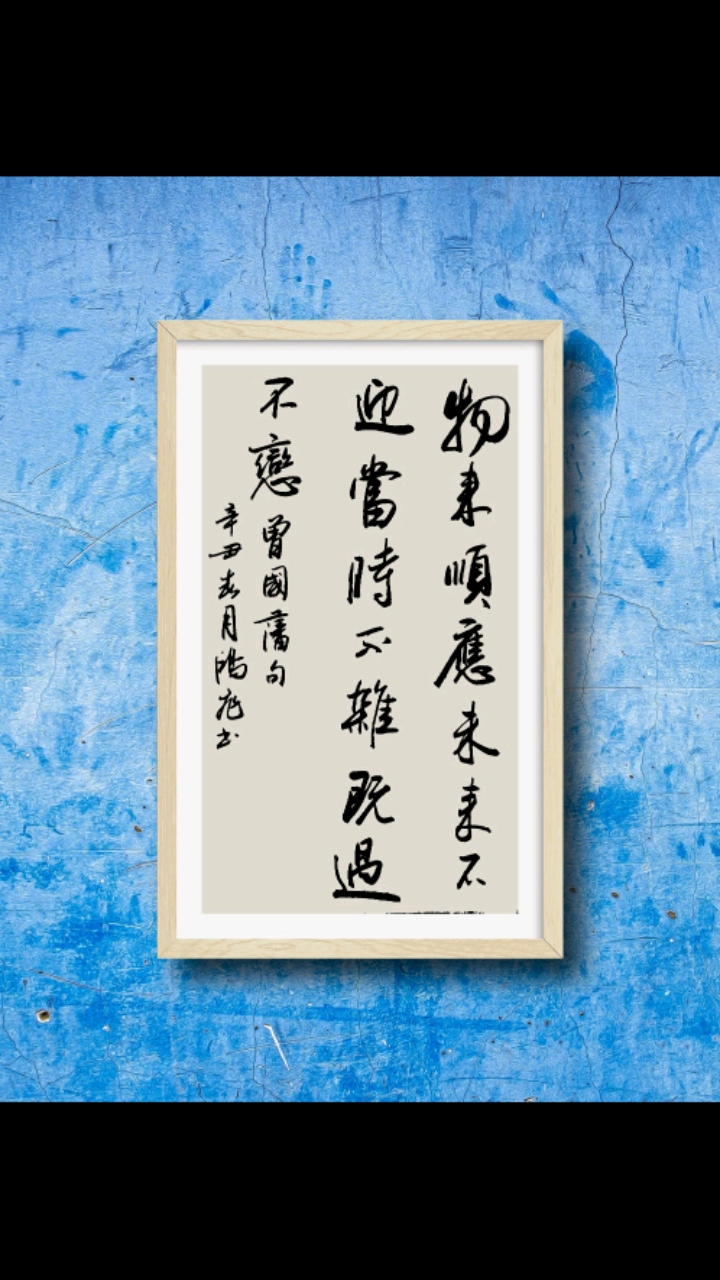 物来順應未来不
迎當時不雜既過
不戀曾國藩句
辛丑春月鴻飛书